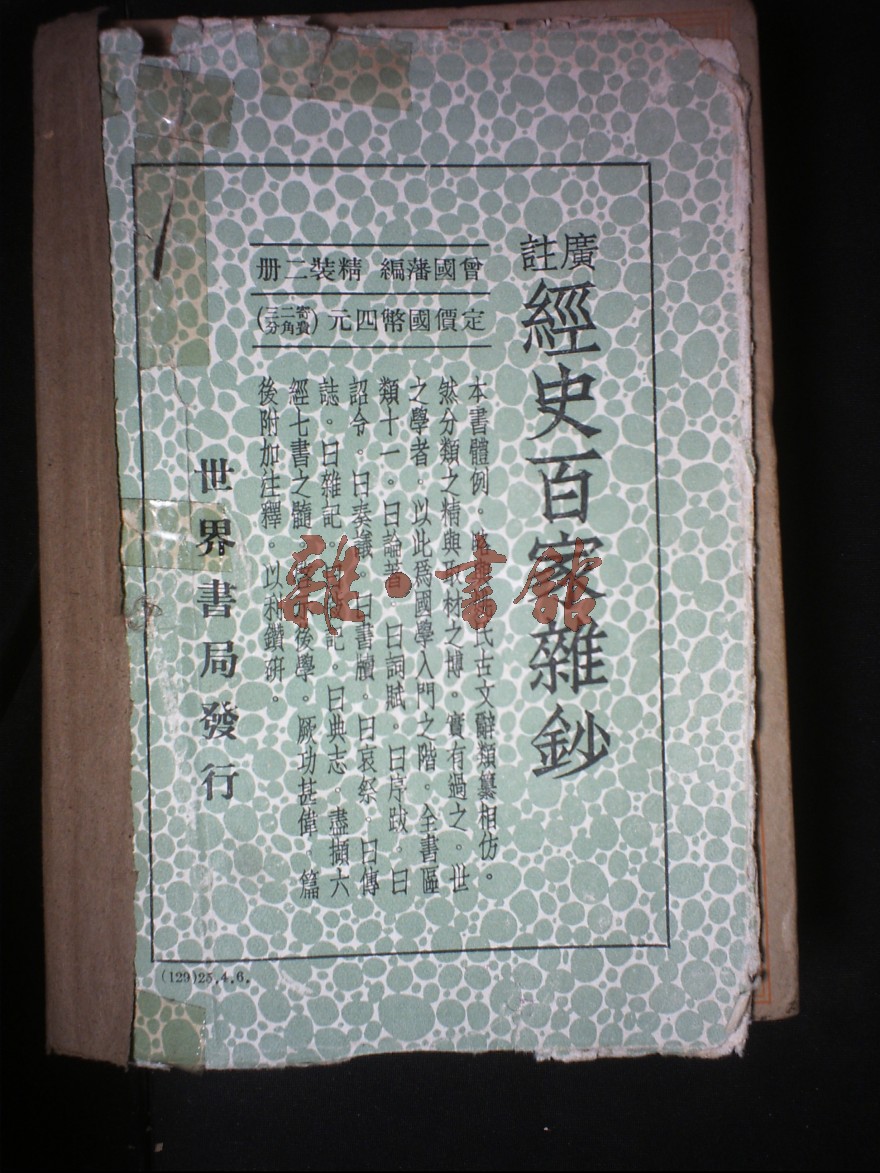 廣註
經史百家雜鈔
曾國藩編 精裝二册
定價國幣四元(寄費二角三分)
本書體例。略與姚氏古文辭類纂相仿。
然分類之精與取材之博。實有過之。世
之學者。以此爲國學入門之階。全書區
類十一。曰論著。曰詞賦。曰序跋。曰
詔令。曰奏議。曰書牘。曰哀祭。曰傳
誌。曰雜記。曰記。曰典志。盡擷六
經七書之髓。後學。厥功甚偉。篇
後附加注釋。以利鑽硏。
世界書局發行
(129)25.4.6.
雜·書館